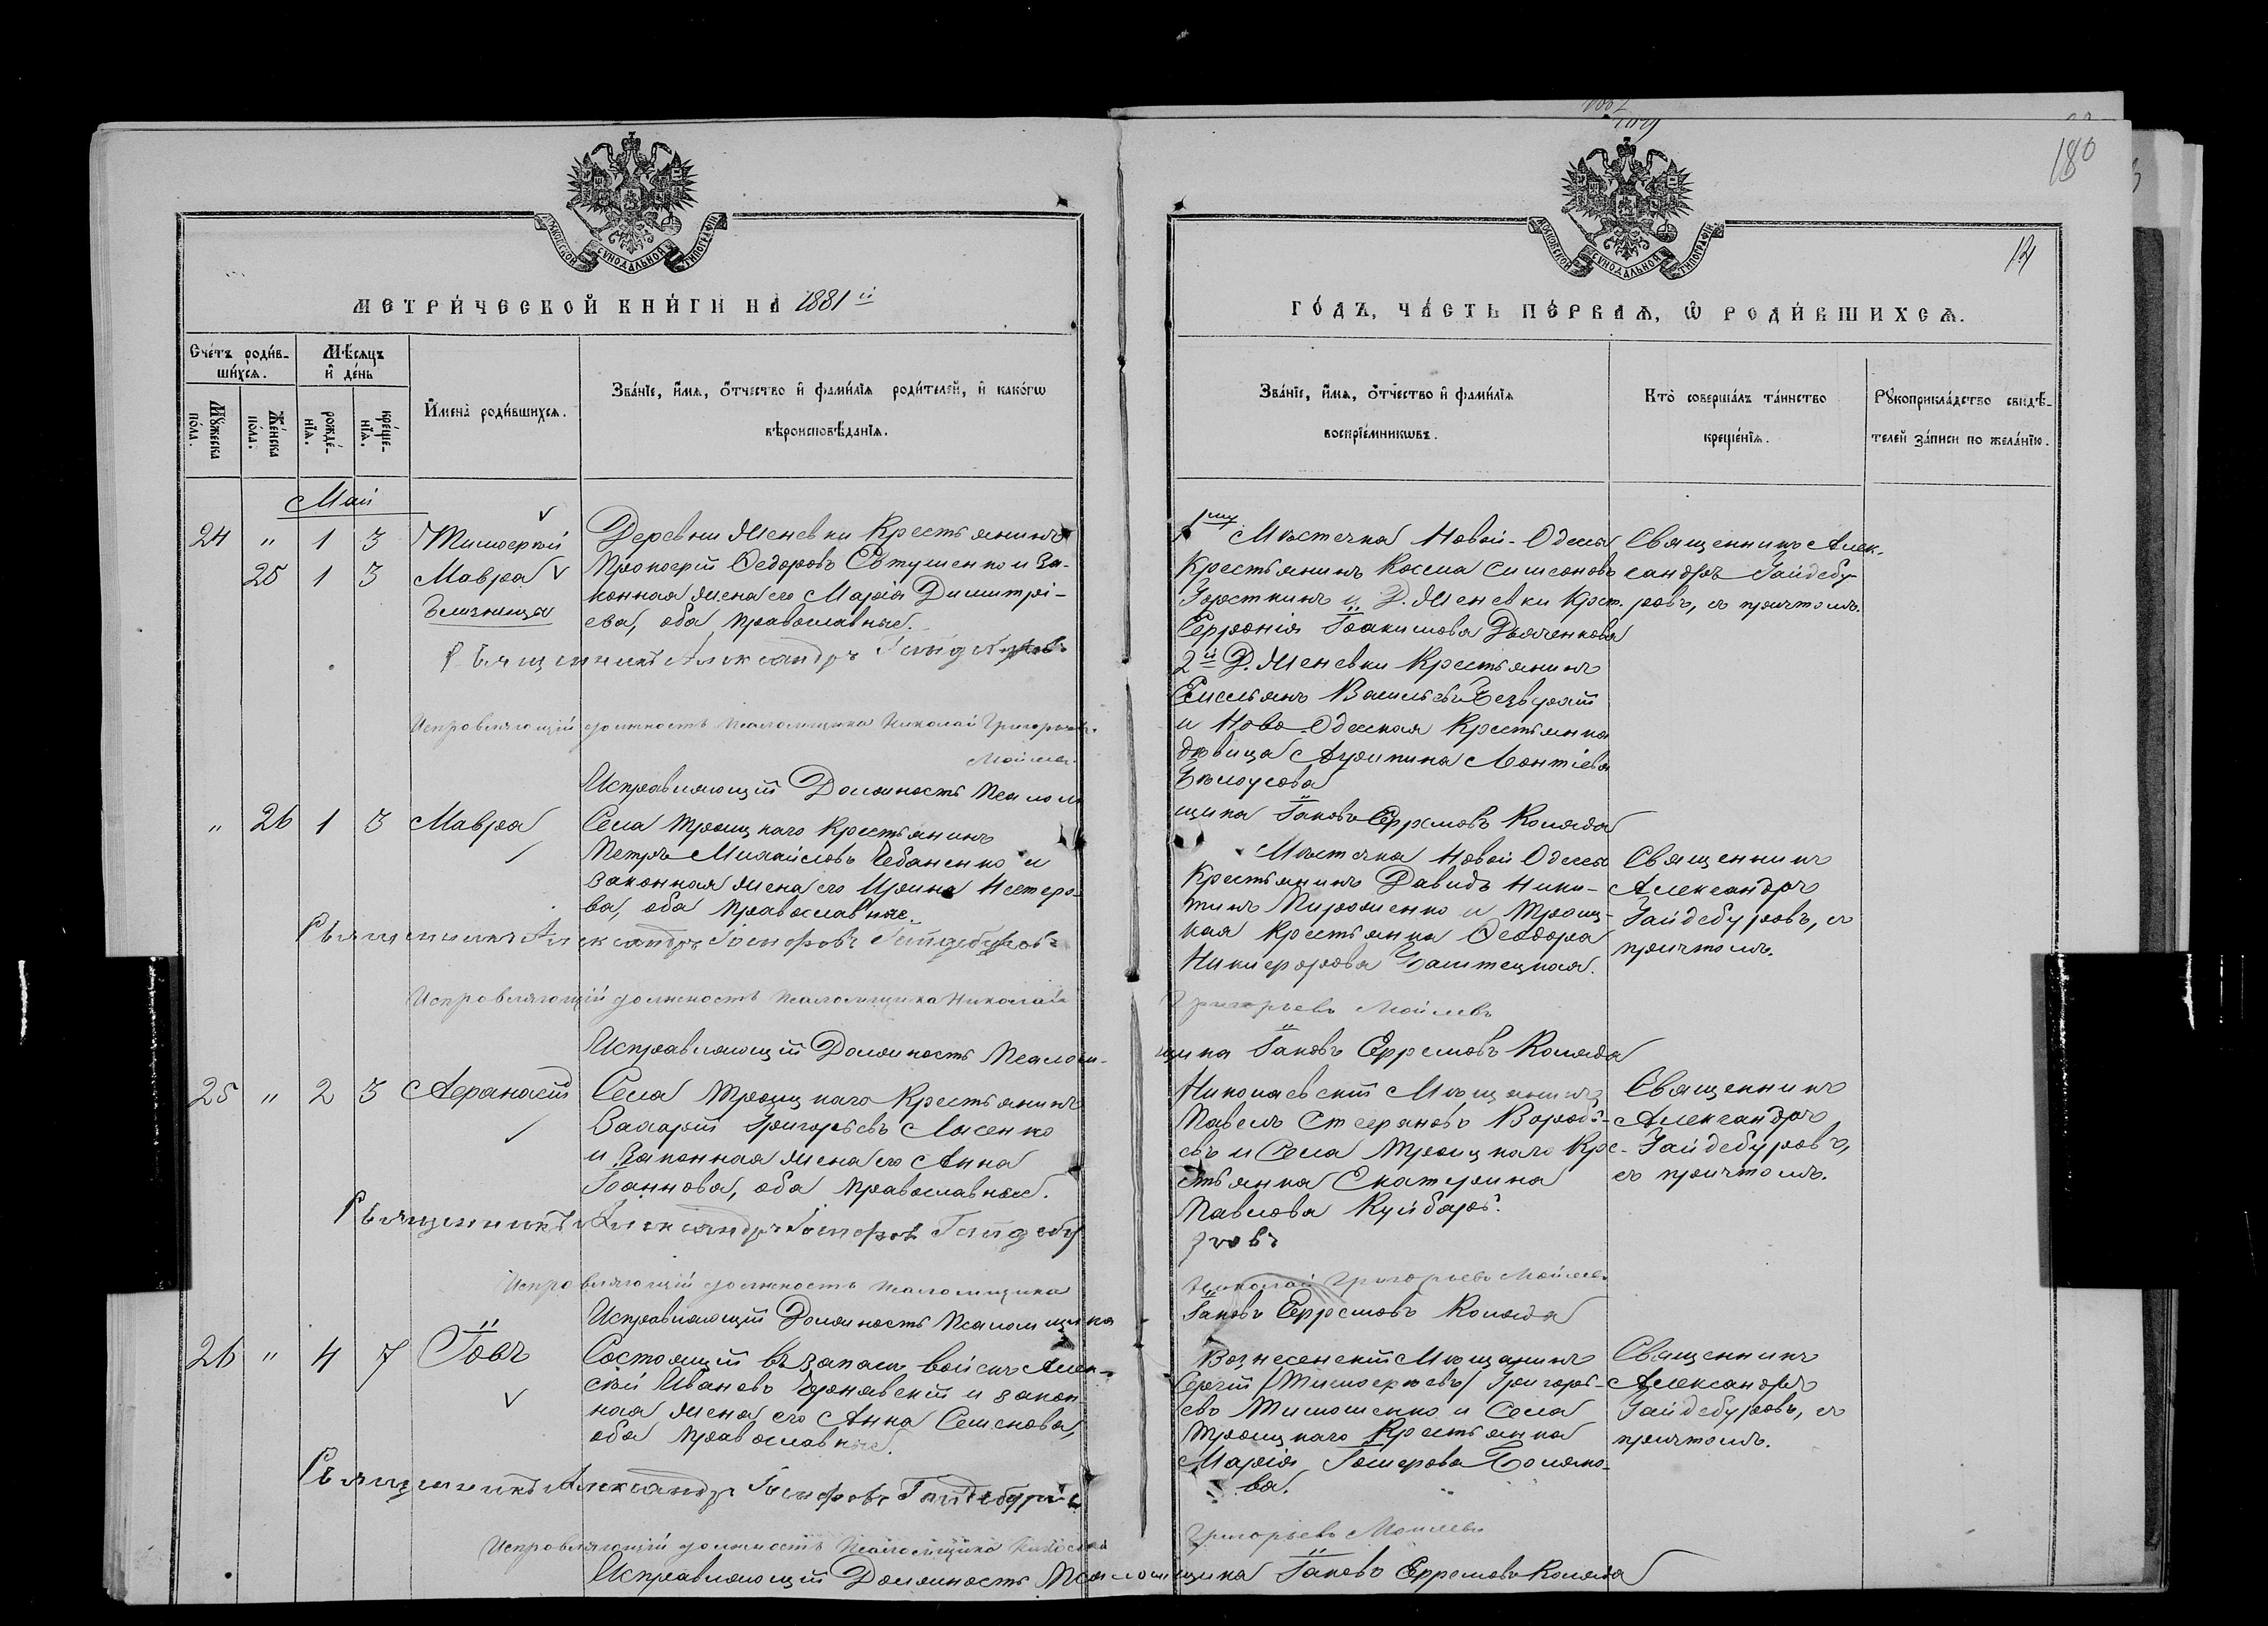 180
14
МОСКОВСКОЙ СѴНОДАЛЬНОЙ ТИПОГРАФІИ
МОСКОВСКОЙ СѴНОДАЛЬНОЙ ТИПОГРАФІИ
МЕТРИ́ЧЕСКОЙ КНИ́ГИ НА 1881й
ГО́ДЪ, ЧА́СТЬ ПЕ́РВАѦ, Ѡ҆ РОДИ́ВШИХСѦ.
Сче́тъ роди́в-
ши́хсѧ.
Мꙋ́жеска по́ла.
Же́нска по́ла.
Мѣ́сѧцъ и҆ де́нь
рожде́-нїѧ.
креще́-нїѧ.
И҆мена̀ роди́вшихсѧ.
Зва́нїе, и҆́мѧ, ѻ҆́тчество и҆ фами́лїѧ роди́телей, и҆ како́гѡ
вѣроисповѣ́данїѧ.
Зва́нїе, и҆́мѧ, ѻ҆́тчество и҆ фами́лїѧ
воспрїе́мникѡвъ.
Кто̀ соверша́лъ та́инство
креще́нїѧ.
Рꙋкоприкла́дство свидѣ́-
телей за́писи по жела́нїю.
Май
24 " 1 3 Тимофей
25 1 3 Мавра
близнецы
Деревни Женевки Крестьянинъ
Прокофій Ѳедоровъ Евтушенко и За-
конная жена его Марія Димитрі-
ева, оба православные.
1му Мѣстечка Новой-Одессы
Крестьянинъ Косма Симеоновъ
и Д. Женевки Крест.
Іоакимова Дьяченкова
2й Д. Женевки Крестьянинъ
Емельянъ Васильевъ
и Ново-Одесская Крестьянка
дѣвица Агрипина Леонтіева
Бѣлоусова
Священникъ Алек-
сандръ Гайдебу-
ровъ, съ причтомъ.
Священникъ Александръ Гайдебуровъ
Исправляющій должность псаломщика Николай Григорьевъ
Исправляющій Должность Псалом
щика Іаковъ Ефремовъ Коляда
" 26 1 3 Мавра
Села Троицкаго Крестьянинъ
Петръ Михайловъ Чебаненко и
законная жена его Ирина Нестеро-
ва, оба православные.
Мѣстечка Новой Одессы
Крестьянинъ Давидъ Ники-
тинъ Мирошенко и Троиц-
кая крестьянка Ѳеодора
Никифорова
Священникъ
Александръ
Гайдебуровъ, съ
причтомъ.
Священникъ Александръ Іосифовъ Гайдебуровъ
Исправляющій должность псаломщика Николай
Григорьевъ Мойсеевъ
Исправляющій Должность Псалом-
щика Іаковъ Ефремовъ Коляда
25 " 2 3 Афанасій
Села Троицкаго Крестьянинъ
Захарій Григорьевъ Лысенко
и Законная жена его Анна
Іоаннова, оба православные.
Николаевскій Мѣщанинъ
Павелъ Стефановъ Вороб-
евъ и Села Троицкаго Кре-
стьянка Екатерина
Павлова
Священникъ
Александръ
Гайдебуровъ,
съ причтомъ.
Священникъ Александръ Іосифовъ Гайдебу
ровъ
Исправляющій должность псаломщика
Николай Григорьевъ Мойсеевъ
Исправляющій Должность Псаломщика
Іаковъ Ефремовъ Коляда
26 " 4 7 Іовъ
Состоящій въ запасѣ войскъ Алек-
сѣй Ивановъ Чернявскій и закон
ная жена его Анна Семенова,
оба православные.
Вознесенскій Мѣщанинъ
Сергій /Тимофеевъ/ Григорь-
евъ Тимошенко и Села
Троицкаго Крестьянка
Марія
ва.
Священникъ
Александръ
Гайдебуровъ, съ
причтомъ.
Священникъ Александръ Іосифовъ Гайдебуровъ
Исправляющій должность псаломщика Николай
Григорьевъ Мойсеевъ
Исправляющій Должность Псаломщика Іаковъ Ефремовъ Коляда